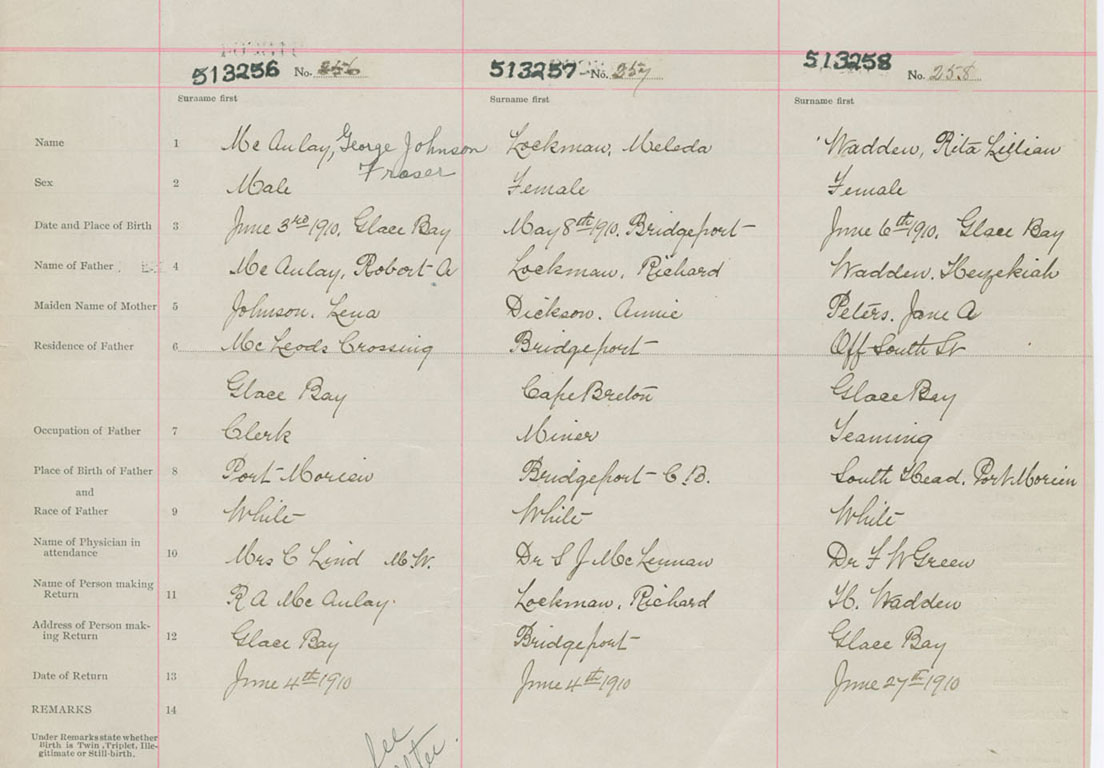 513256 No. 256 513257 No. 257 513258 No. 258
Surname first Surname first Surname first
Name 1 McAulay, George Johnson Lockman, Meleda Wadden, Rita Lillian
Fraser
Sex 2 Male Female Female
Date and Place of Birth 3 June 3rd 1910. Glace Bay May 8th 1910. Bridgeport June 6th 1910. Glace Bay
Name of Father 4 McAulay, Robert A Lockman, Richard Wadden. Hezekiah
Maiden Name of Mother 5 Johnson. Lena Dickson. Annie Peters. Jane A
Residence of Father 6 McLeods Crossing Bridgeport Off South St
Glace Bay Cape Breton Glace Bay
Occupation of Father 7 Clerk Miner Teaming
Place of Birth of Father 8 Port Morien Bridgeport C.B. South Head. Port Morien
and
Race of Father 9 White White White
Name of Physician in
attendance 10 Mrs C Lind M.W. Dr S J McLennan Dr F W Green
Name of Person making
Return 11 R A McAulay. Lockman, Richard H. Wadden
Address of Person mak-
ing Return 12 Glace Bay Bridgeport Glace Bay
Date of Return 13 June 4th 1910 June 4th 1910 June 27th 1910
REMARKS 14
Under Remarks state whether
Birth is Twin, Triplet, Ille-
gitimate or Still-birth.
See